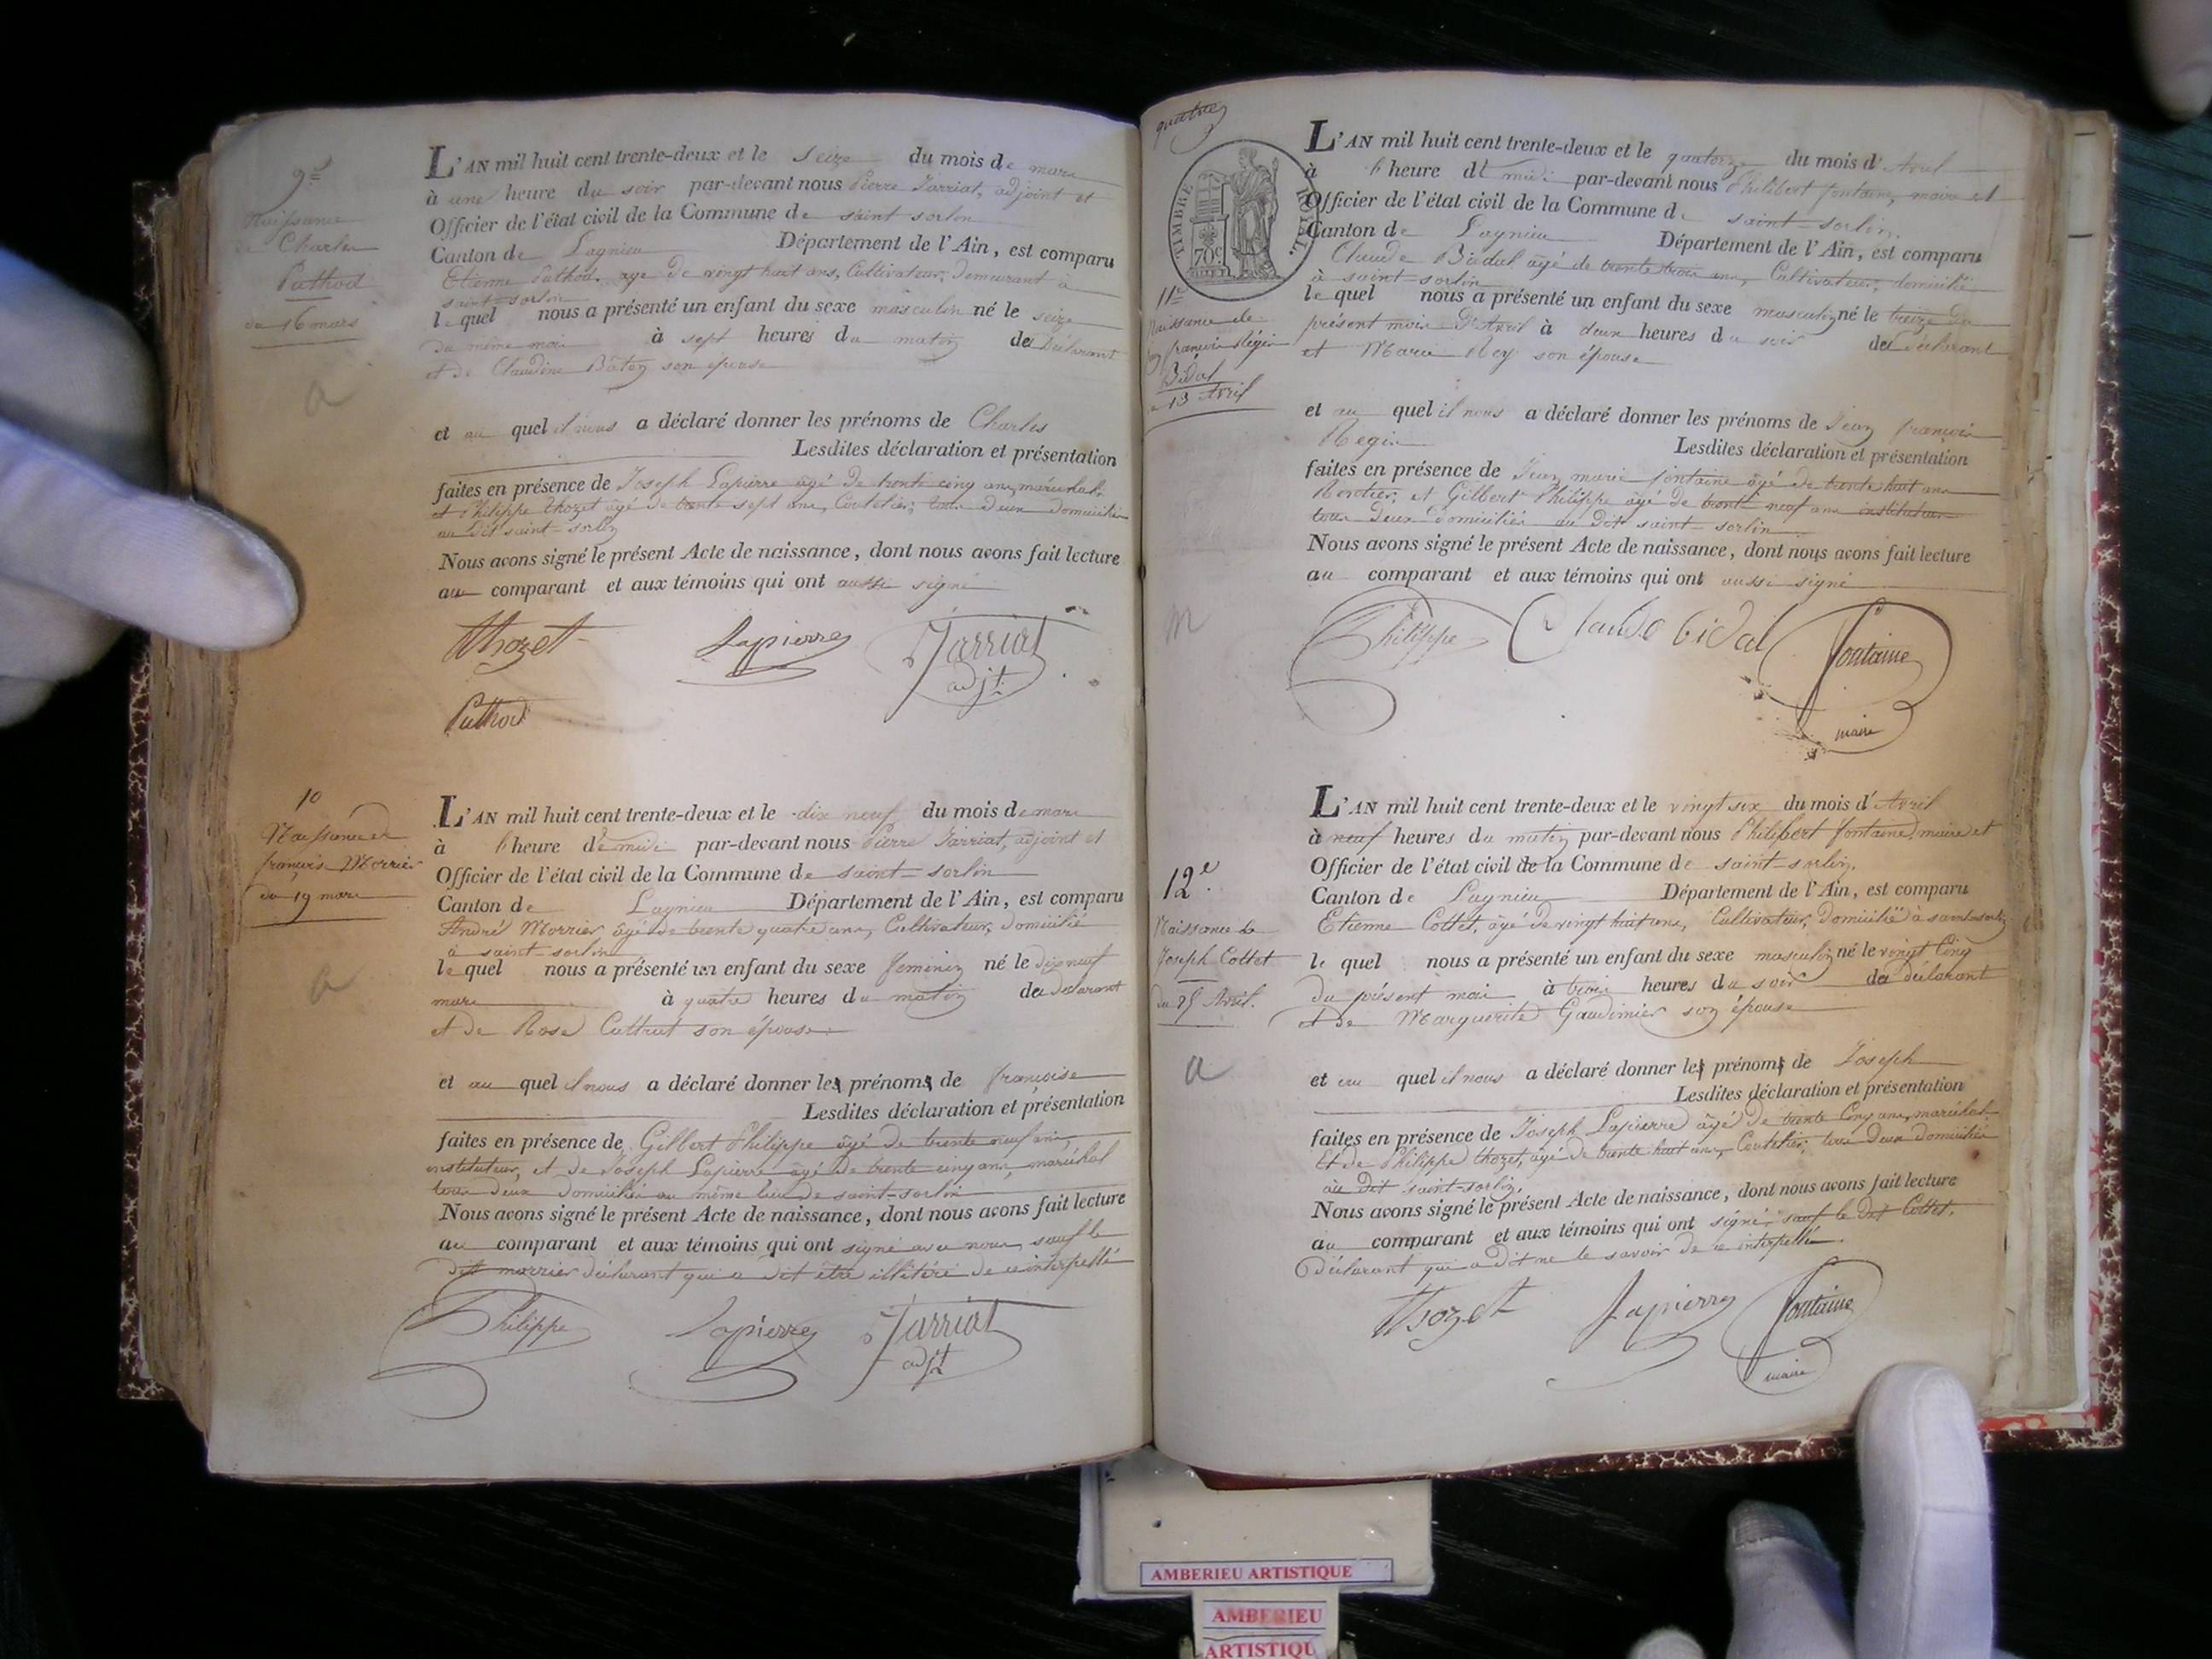 9e
Naissance
de Charles
Pathod
du 16 mars
a
L'AN mil huit cent trente-deux et le seize du mois de mars
à une heure du soir par-devant nous Pierre Jarriat, adjoint et
Officier de l'état civil de la Commune de saint sorlin
Canton de Lagnieu Département de l'Ain, est comparu
Etienne Pathod âgé de vingt huit ans, Cultivateur, demeurant à
saint-sorlin
lequel nous a présenté un enfant du sexe masculin né le seize
du même mois à sept heures du matin de déclarant
et de Claudine Baton son épouse
et au quel il nous a déclaré donner les prénoms de Charles
Lesdites déclaration et présentation
faites en présence de Joseph Lapierre âgé de trente cinq ans, maréchal
et Philippe thozet âgé de trente sept ans, Coutelier, tous deux domiciliés
au dit saint-sorlin
Nous avons signé le présent Acte de naissance, dont nous avons fait lecture
au comparant et aux témoins qui ont aussi signé
thozet Lapierre Jarriat
adjt
Pathod
10
Naissance de
françoise Morrier
du 19 mars
a
L'AN mil huit cent trente-deux et le dix neuf du mois de mars
à l'heure de midi par-devant nous Pierre Jarriat, adjoint et
Officier de l'état civil de la Commune de saint-sorlin
Canton de Lagnieu Département de l'Ain, est comparu
André Morrier âgé de trente quatre ans, Cultivateur, domicilié
à saint-sorlin
lequel nous a présenté un enfant du sexe féminin né le dix neuf
mars à quatre heures du matin de déclarant
et de Rose Cuttrut son épouse
et au quel il nous a déclaré donner les prénoms de françoise
Lesdites déclaration et présentation
faites en présence de Gilbert Philippe âgé de trente neuf ans,
instituteur, et de Joseph Lapierre âgé de trente cinq ans, maréchal
tous deux domiciliés au même lieu de saint-sorlin
Nous avons signé le présent Acte de naissance, dont nous avons fait lecture
au comparant et aux témoins qui ont signé avec nous, sauf le
dit morrier déclarant qui a dit être illitéré de ce interpellé
Philippe Lapierre Jarriat
adjt
quatre
TIMBRE ROYAL
70c
11e
Naissance de
Jean françois Régis
Bidal
du 13 Avril
m
L'AN mil huit cent trente-deux et le quatorze du mois d'Avril
à l'heure de midi par-devant nous Philibert fontaine, maire et
Officier de l'état civil de la Commune de saint-sorlin.
Canton de Lagnieu Département de l'Ain, est comparu
Claude Bidal âgé de trente trois ans, Cultivateur, domicilié
à saint-sorlin
lequel nous a présenté un enfant du sexe masculin né le treize du
présent mois d'Avril à deux heures du soir de déclarant
et Marie Rey son épouse
et au quel il nous a déclaré donner les prénoms de Jean françois
Regis Lesdites déclaration et présentation
faites en présence de Jean marie fontaine âgé de trente huit ans
Rentier, et Gilbert Philippe âgé de trente neuf ans instituteur
tous deux domiciliés au dit saint-sorlin
Nous avons signé le présent Acte de naissance, dont nous avons fait lecture
au comparant et aux témoins qui ont aussi signé
Philippe Claude bidal fontaine
maire
12e
Naissance de
Joseph Cottet
du 25 Avril.
a
L'AN mil huit cent trente-deux et le vingt six du mois d'Avril
à neuf heures du matin par-devant nous Philibert fontaine, maire et
Officier de l'état civil de la Commune de saint-sorlin.
Canton de Lagnieu Département de l'Ain, est comparu
Etienne Cottet, âgé de vingt huit ans, Cultivateur, domicilié à saint-sorlin
lequel nous a présenté un enfant du sexe masculin né le vingt Cinq
du présent mois à trois heures du soir de déclarant
et de Marguerite Gaudimier son épouse
et au quel il nous a déclaré donner les prénoms de Joseph
Lesdites déclaration et présentation
faites en présence de Joseph Lapierre âgé de trente Cinq ans, maréchal
Et de Philippe thozet, âgé de trente huit ans, Coutelier, tous deux domiciliés
au dit saint-sorlin.
Nous avons signé le présent Acte de naissance, dont nous avons fait lecture
au comparant et aux témoins qui ont signé, sauf le dit Cottet,
déclarant qui a dit ne le savoir de ce interpellé.
thozet Lapierre fontaine
maire
AMBERIEU ARTISTIQUE
AMBERIEU
ARTISTIQU